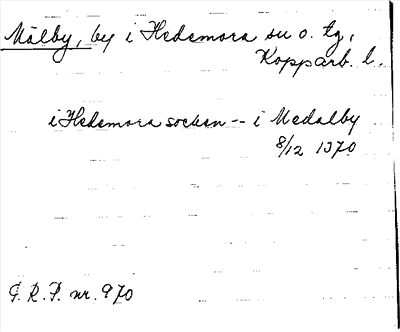 Mälby, by i Hedemora su o. tg,
Kopparb. l.
i Hedemora socken -- i Medalby
8/12 1370
G. R. P. nr. 970